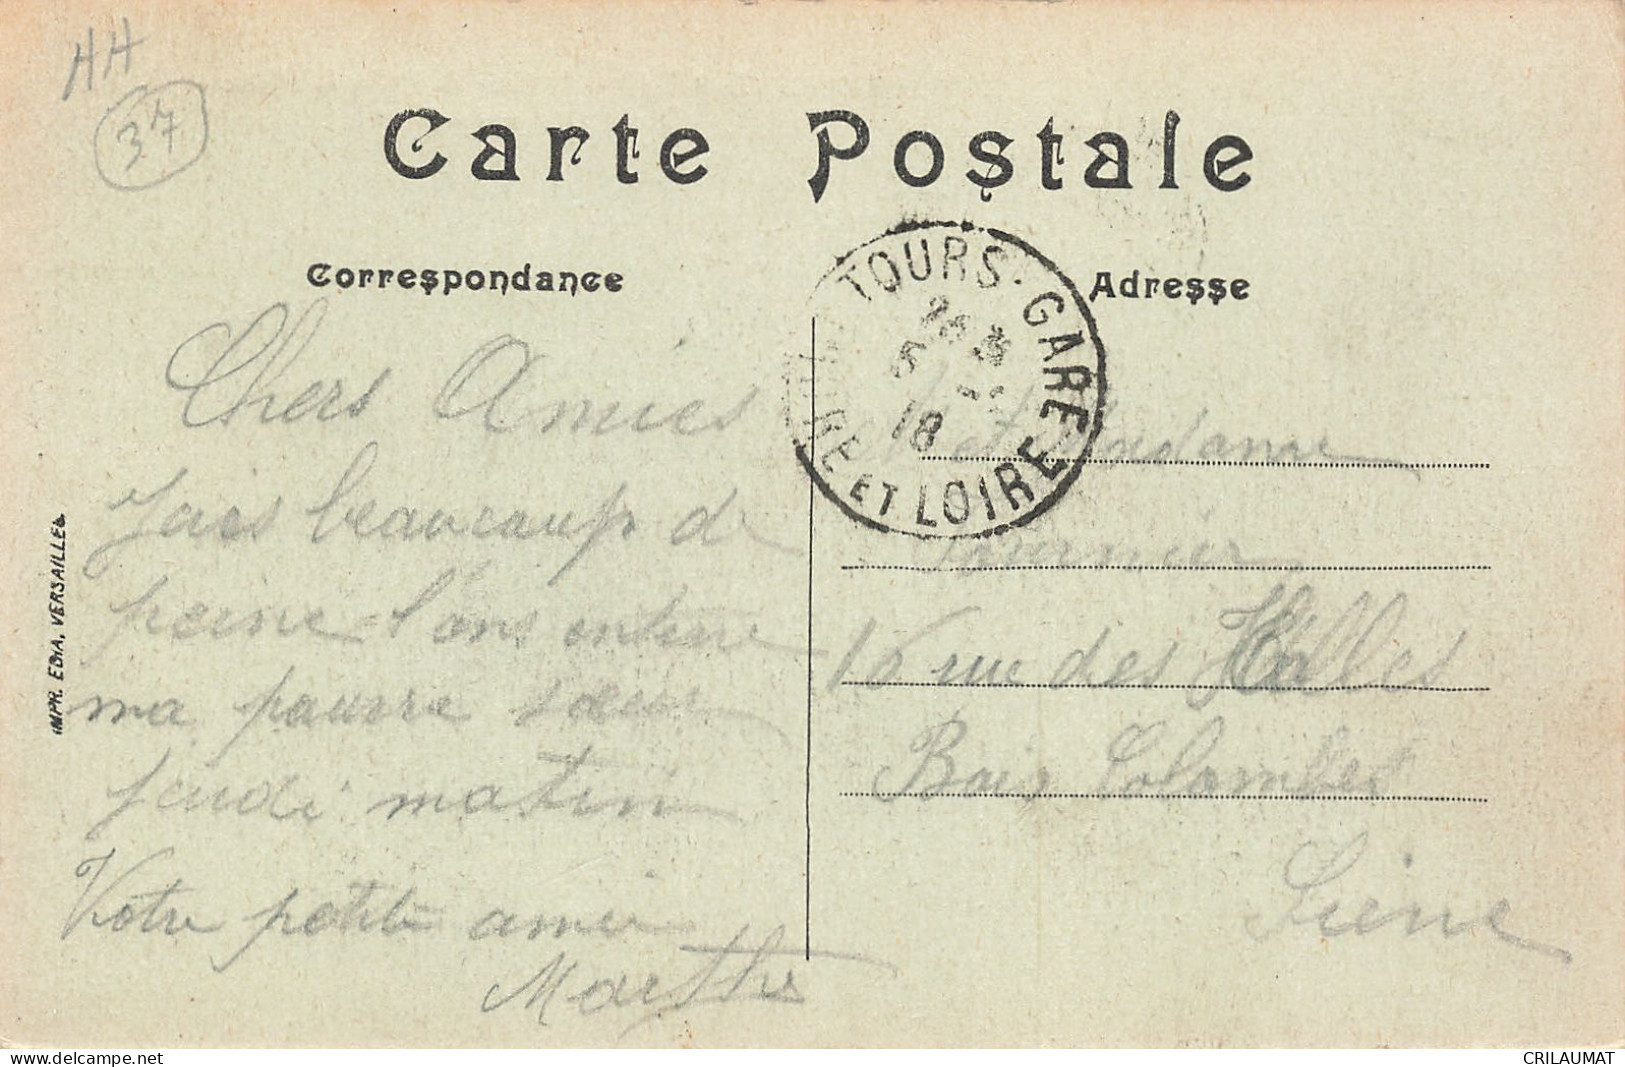 HH
37
Carte Postale
Correspondance
Adresse
TOURS-GARE
ET LOIRE
18
Chers Amies
Jais beaucoup de
peine l'ons enterre
ma pauvre sœur
jeudi matin
Votre petite amie
Marthe
Fournier
16 rue des Halles
Bois Colombes
Siene
IMPR. EDIA. VERSAILLES
www.delcampe.net
CRILAUMAT